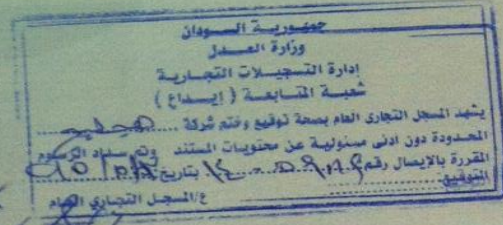 جمهورية السودان
وزارة العدل
إدارة التسجيلات التجارية
شعبة المتابعة ( إيداع )
يشهد المسجل التجاري العام بصحة توقيع وختم شركة
المحدودة دون ادنى مسئولية عن محتويات المستند وتم سداد الرسوم
المقررة بالإيصال رقم بتاريخ
التوقيع:
ع/المسجل التجاري العام